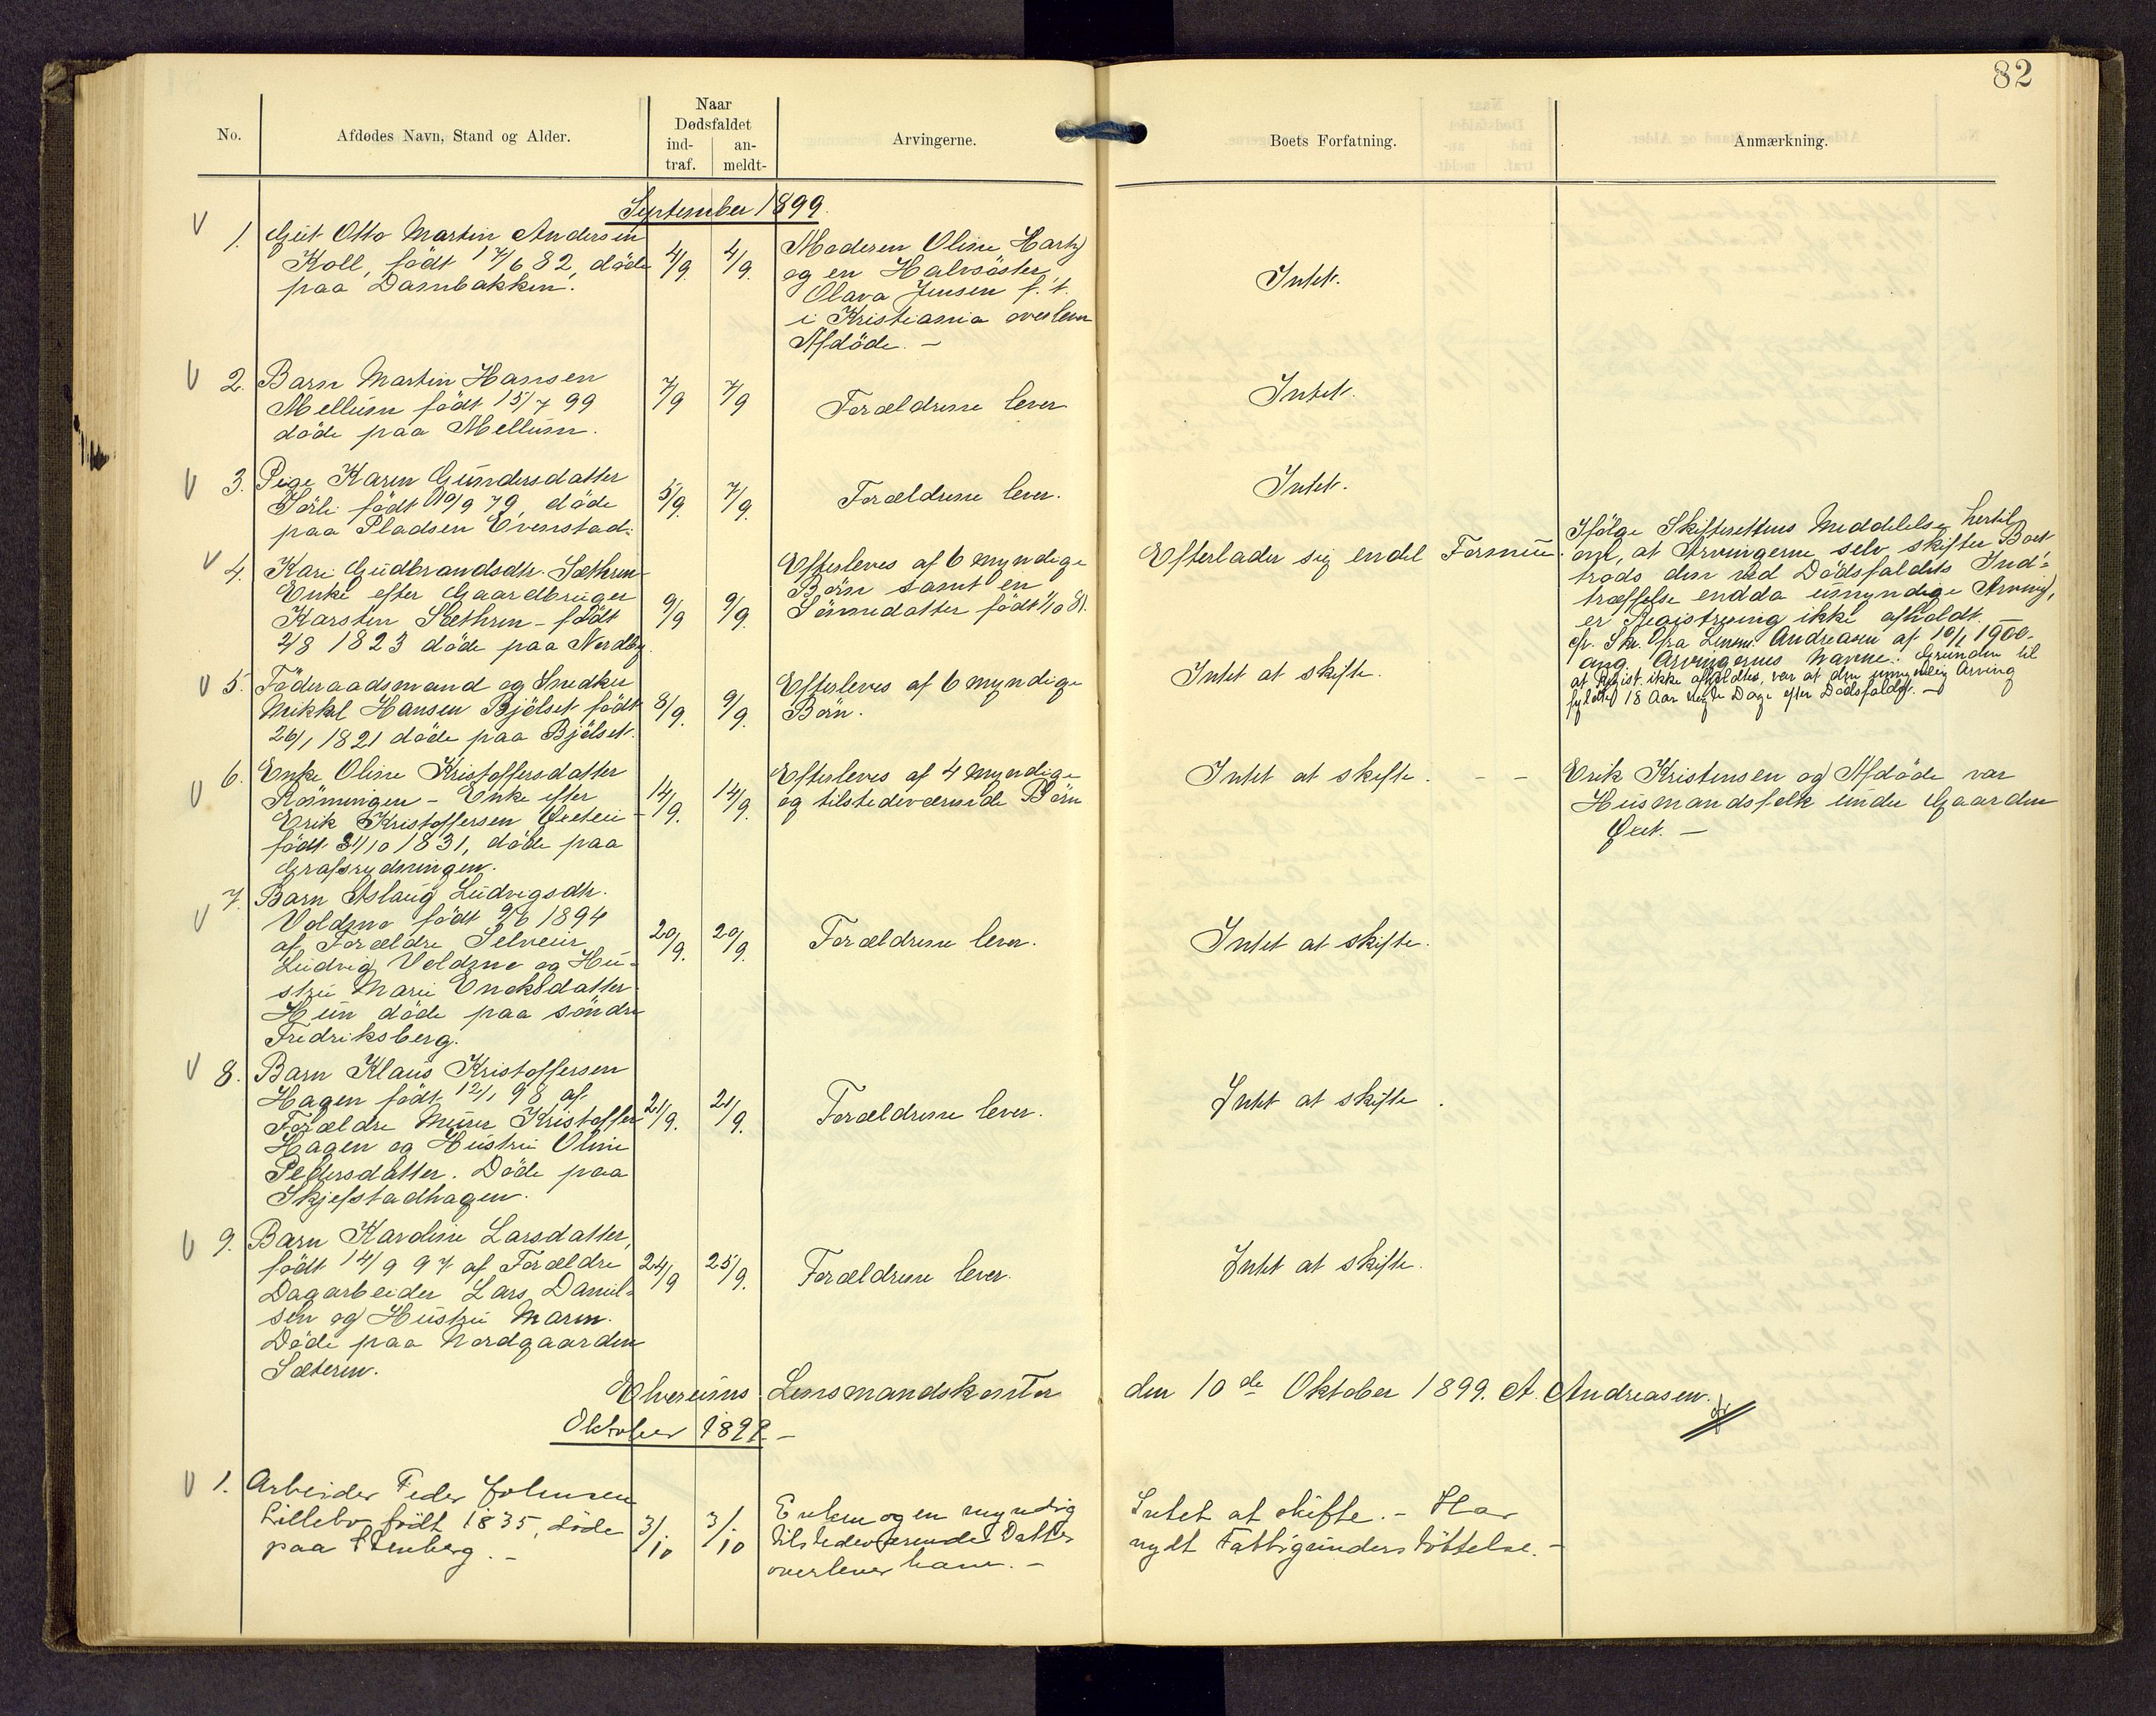 82
No.
Afdødes Navn, Stand og Alder.
Naar
Dødsfaldet
ind-
traf.
an-
meldt-
Arvingerne.
Boets Forfatning.
Anmærkning.
September 1899.
1. Gut Otto Martin Andersen
Koll, født 17/6 82, døde
paa Dambakken.
4/9
4/9.
Moderen Oline Hartz
og en Halvsøster
Olava Jensen f. t.
i Kristiania overlever
Afdøde. -
Intet.
2. Barn Martin Hansen
Mellum født 15/7 99
døde paa Mellum.
7/9
7/9
Forældrene lever
Intet.
3. Pige Karen Gundersdatter
Sørli født 10/9 79, døde
paa Pladsen Evenstad.
5/9.
7/9.
Forældrene lever.
Intet.
4. Kari Gudbrandsdtr. Sæthren
Enke efter Gaardbruger
Karsten Sæthren - født
2/8 1823 døde paa Nordby.
9/9
9/9.
Efterleves af 6 myndige
Børn samt en
Sønnedatter født 1/10 81.
Efterlader sig endel Formue.
Ifølge Skifterettens Meddelelse hertil
om, at Arvingerne selv skifter Boet
trods den ved Dødsfaldets Ind-
træffelse endda umyndige Arving,
er Registrering ikke afholdt. -
cfr. Skr. fra Lensm. Andreasen af 10/1 1900.
ang. Arvingernes Navne. Grunden til
at Regist. ikke afholdtes, var at den umyndig Arving
fyldte 18 Aar nogle Dage efter Dødsfaldet. -
5. Føderaadsmand og Snedker
Mikkel Hansen Bjølset født
26/1 1821 døde paa Bjølset.
8/9.
9/9.
Efterleves af 6 myndige
Børn.
Intet at skifte.
6. Enke Oline Kristoffersdatter
Rømningen - Enke efter
Erik Kristoffersen
født 31/10 1831, døde paa
Grafsrydningen.
14/9.
14/9.
Efterleves af 4 myndige
og tilstedeværende Børn
Intet at skifte. - -
Erik Kristensen og Afdøde var
Husmandsfolk under Gaarden
7. Barn Aslaug Ludvigsdtr.
Voldmo født 9/6 1894
af Forældre Selveier
Ludvig Voldmo og Hu-
stru Marie
Hun døde paa søndre
Fredriksberg.
20/9.
20/9.
Forældrene lever.
Intet at skifte.
8. Barn Klaus Kristoffersen
Hagen født 12/1 98 af
Forældre Murer Kristoffer
Hagen og Hustru Oline
Pedersdatter. Døde paa
Skjefstadhagen.
21/9.
21/9.
Forældrene lever.
Intet at skifte.
9. Barn Karoline Larsdatter,
født 14/9 97 af Forældre
Dagarbeider Lars Daniel-
sen og Hustru Maren.
Døde paa Nordgaarden
Sæteren.
24/9
25/9.
Forældrene lever.
Intet at skifte.
Elverums Lensmandskontor den 10de Oktober 1899. A. Andreasen.
Oktober 1899. -
1. Arbeider Peder Johnsen
Lillebo, født 1835, døde
paa Stenberg. -
3/10
3/10
Enken og en myndig
tilstedeværende Datter
overlever ham. -
Intet at skifte. - Har
nydt Fattigunderstøttelse. -